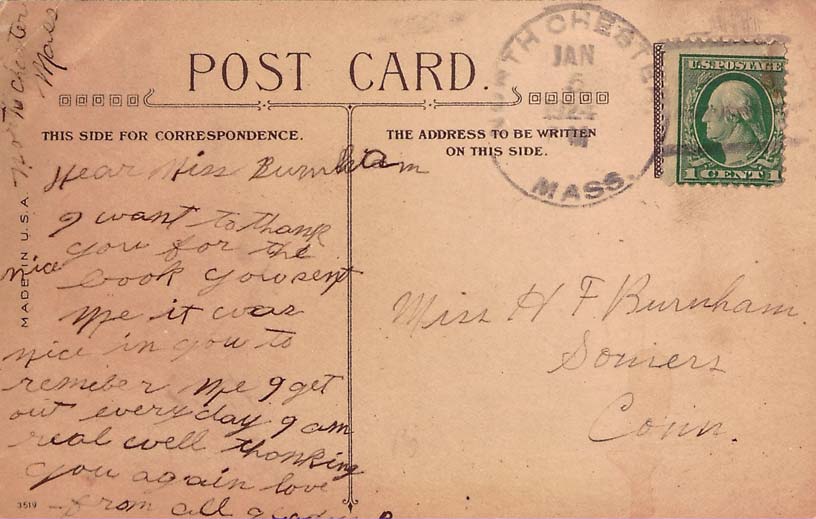 North Chester
Mass
POST CARD.
THIS SIDE FOR CORRESPONDENCE.
THE ADDRESS TO BE WRITTEN
ON THIS SIDE.
NORTH CHESTER
JAN
5
MASS.
U.S. POSTAGE
1 CENT 1
MADE IN U.S.A.
Dear Miss Burnham
I want to thank
you for the
nice book you sent
me it was
nice in you to
remeber me I get
out every day I am
real well thanking
you again love
from all
Miss H F Burnham.
Somers
Conn.
3519